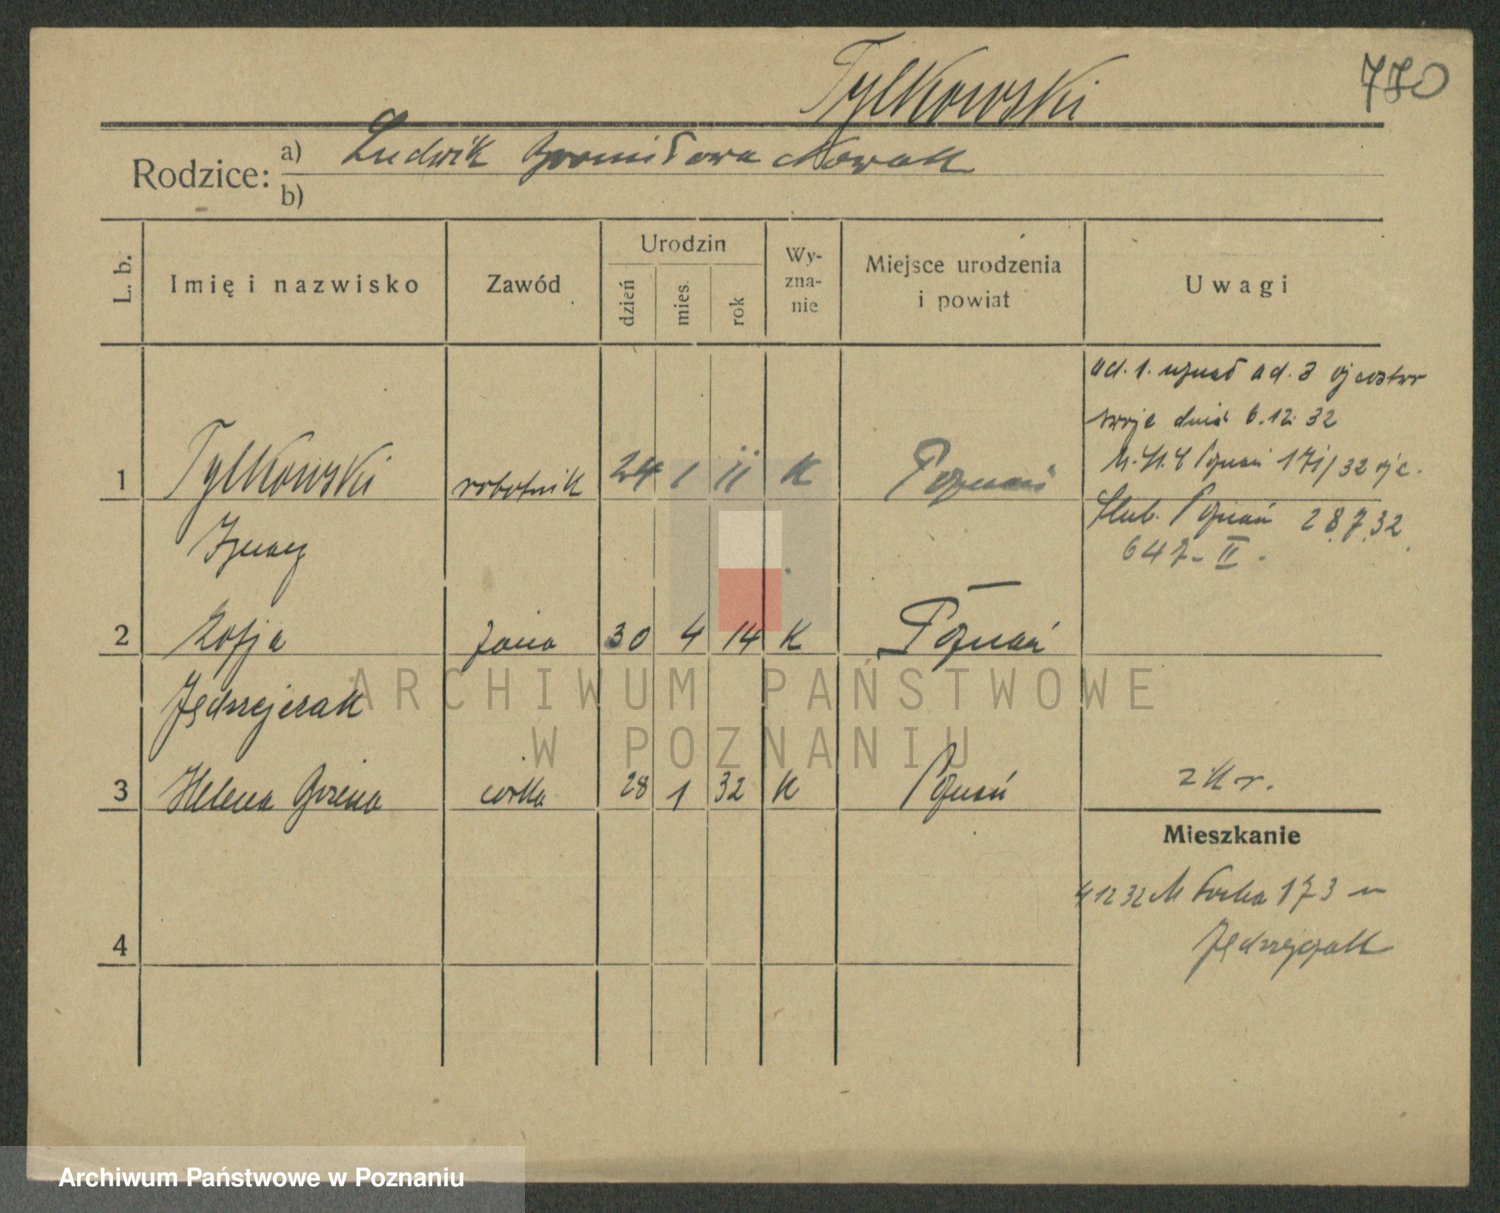 Tylkowski
770
Rodzice: a) Ludwik Bronisława Nowak
b)
L. b.
Imię i nazwisko
Zawód
Urodzin
dzień
mies.
rok
Wy-
zna-
nie
Miejsce urodzenia
i powiat
Uwagi
ad. 1. uznał ad. 3 ojcostwo
swoje dnia 6.12.32
Poznań 171/32
1 Tylkowski robotnik 24 1 11 K Poznań
Ignacy
ślub. Poznań 28.7.32.
647-II.
2 Zofja żona 30 4 14 K Poznań
Jędrzejczak
3 Helena Bożena córka 28 1 32 K Poznań
2 K r.
Mieszkanie
4 12 32 M Focha 173 u
Jędrzejczak
4
ARCHIWUM PAŃSTWOWE
W POZNANIU
Archiwum Państwowe w Poznaniu